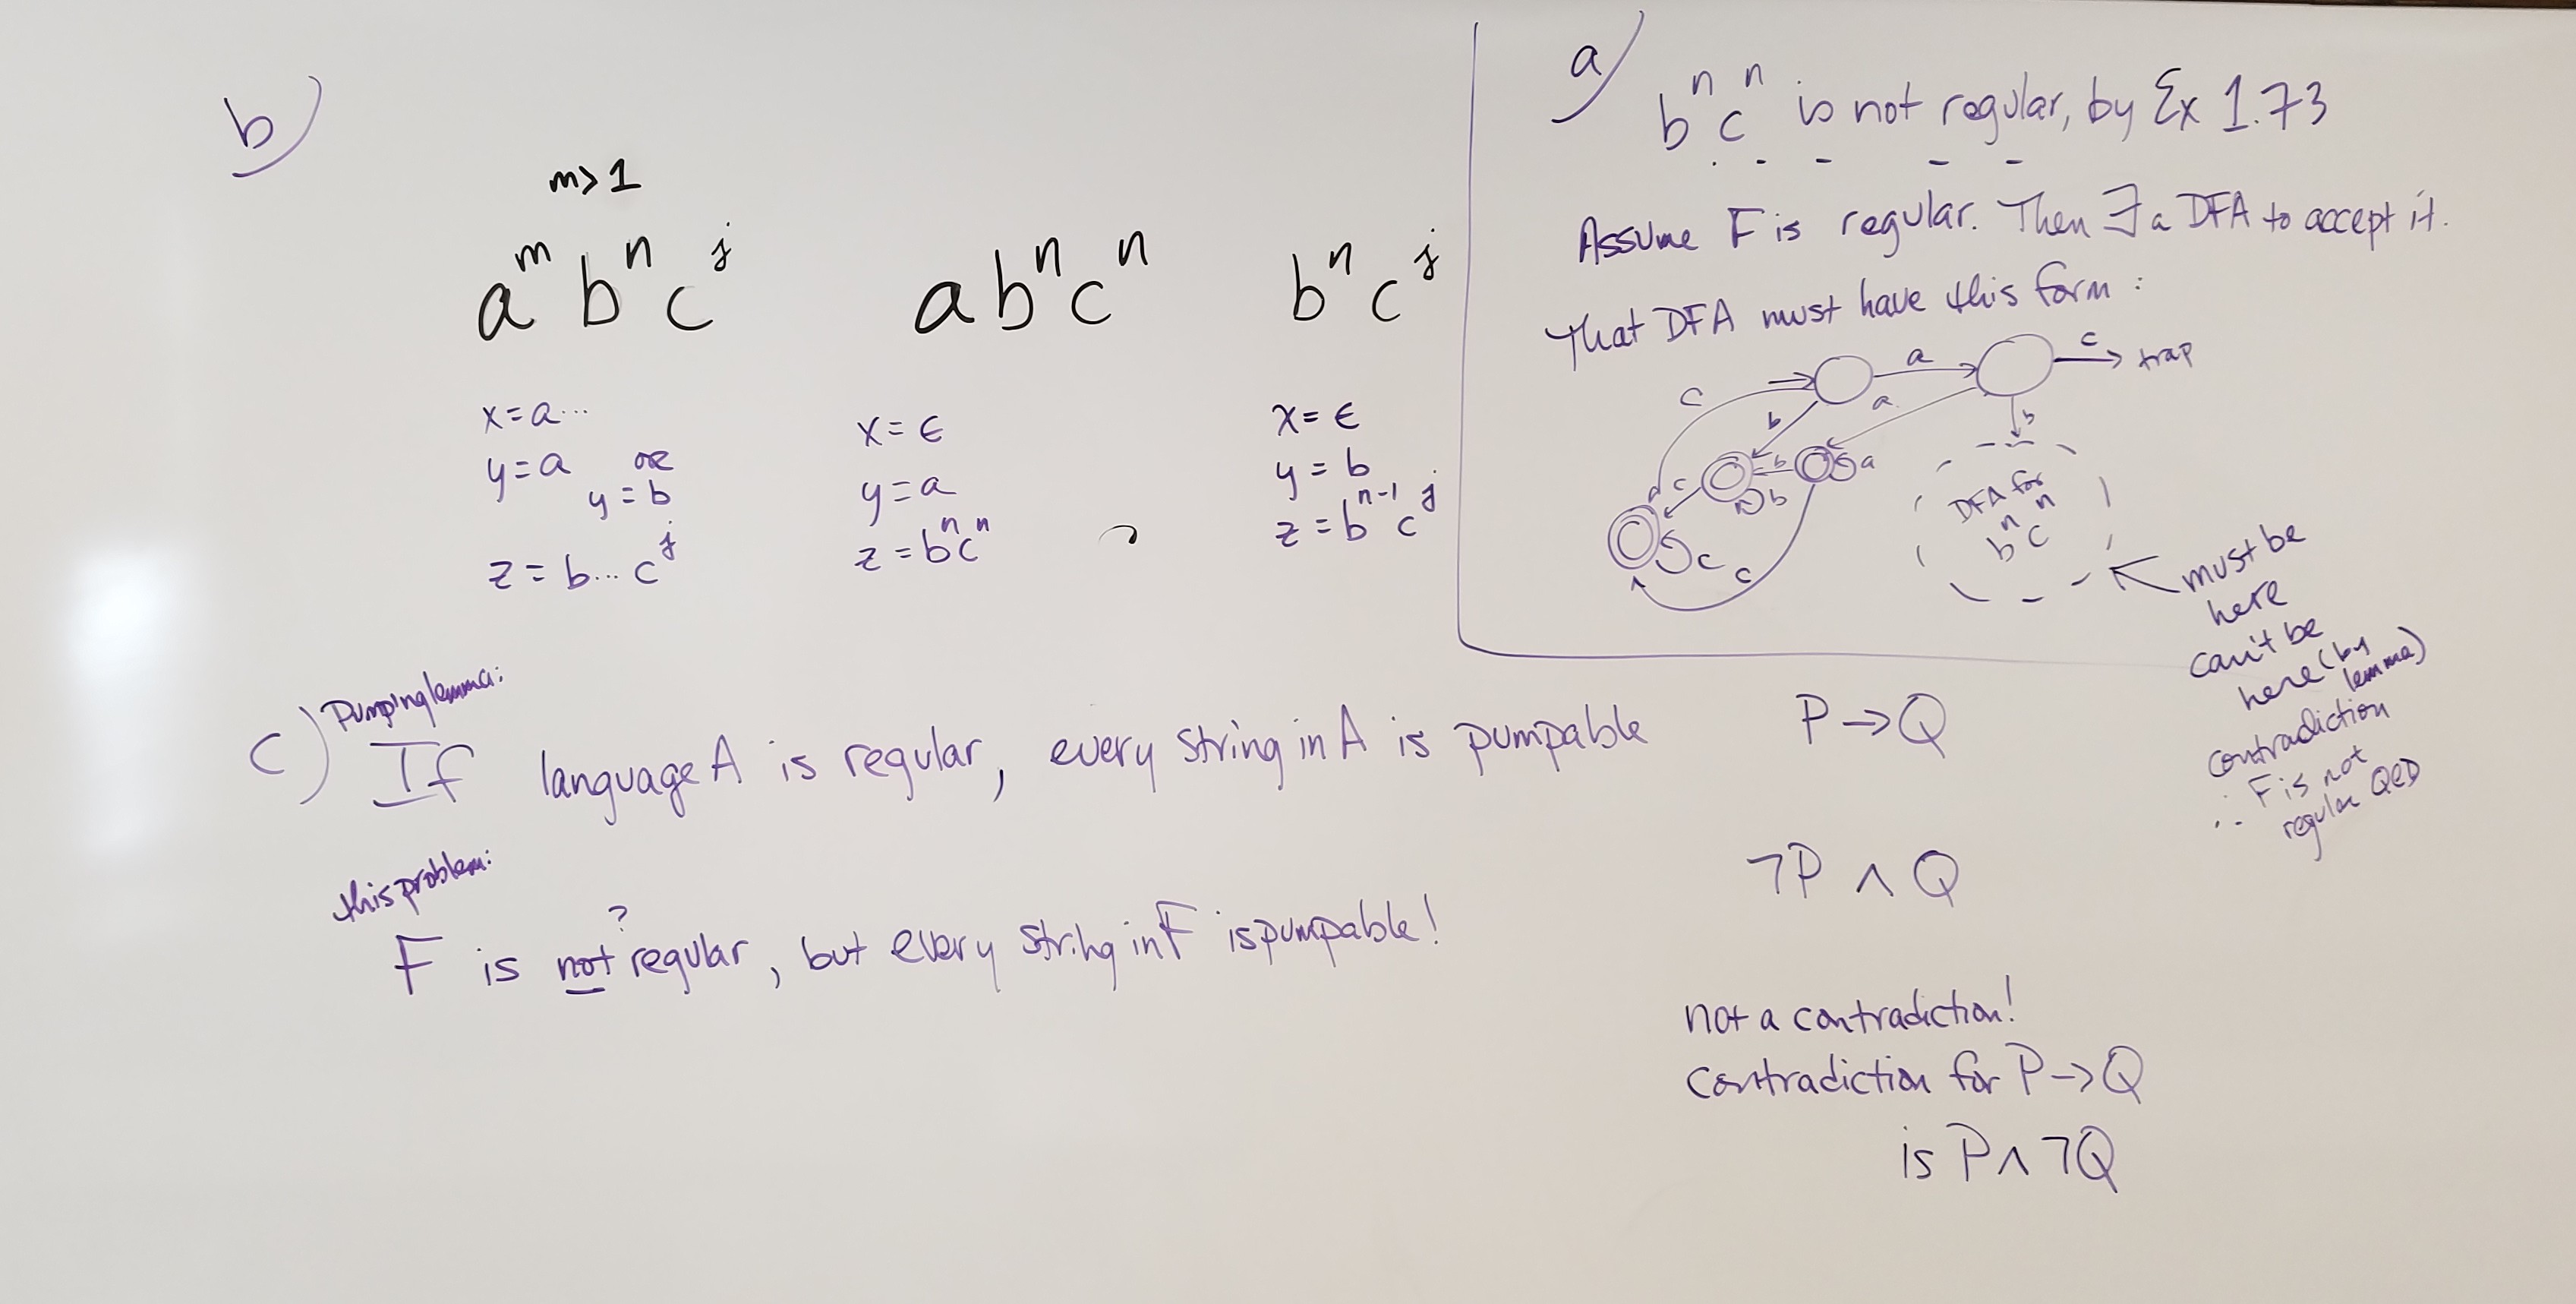 a)
bⁿcⁿ is not regular, by Ex 1.73
Assume F is regular. Then ∃ a DFA to accept it.
That DFA must have this form:
a
c → trap
c
b
a
b
b
a
c
b
c
c
DFA for
bⁿcⁿ
must be
here
can't be
here (by
lemma)
contradiction
∴ F is not
regular QED
b)
m>1
aᵐbⁿcʲ
x=a...
y=a or
y=b
z=b...cʲ
abⁿcⁿ
x=ε
y=a
z=bⁿcⁿ
bⁿcʲ
x=ε
y=b
z=bⁿ⁻¹cʲ
c)
Pumping lemma:
If language A is regular, every string in A is pumpable
P→Q
this problem:
?
F is not regular, but every string in F is pumpable!
¬P ∧ Q
not a contradiction!
contradiction for P→Q
is P∧¬Q